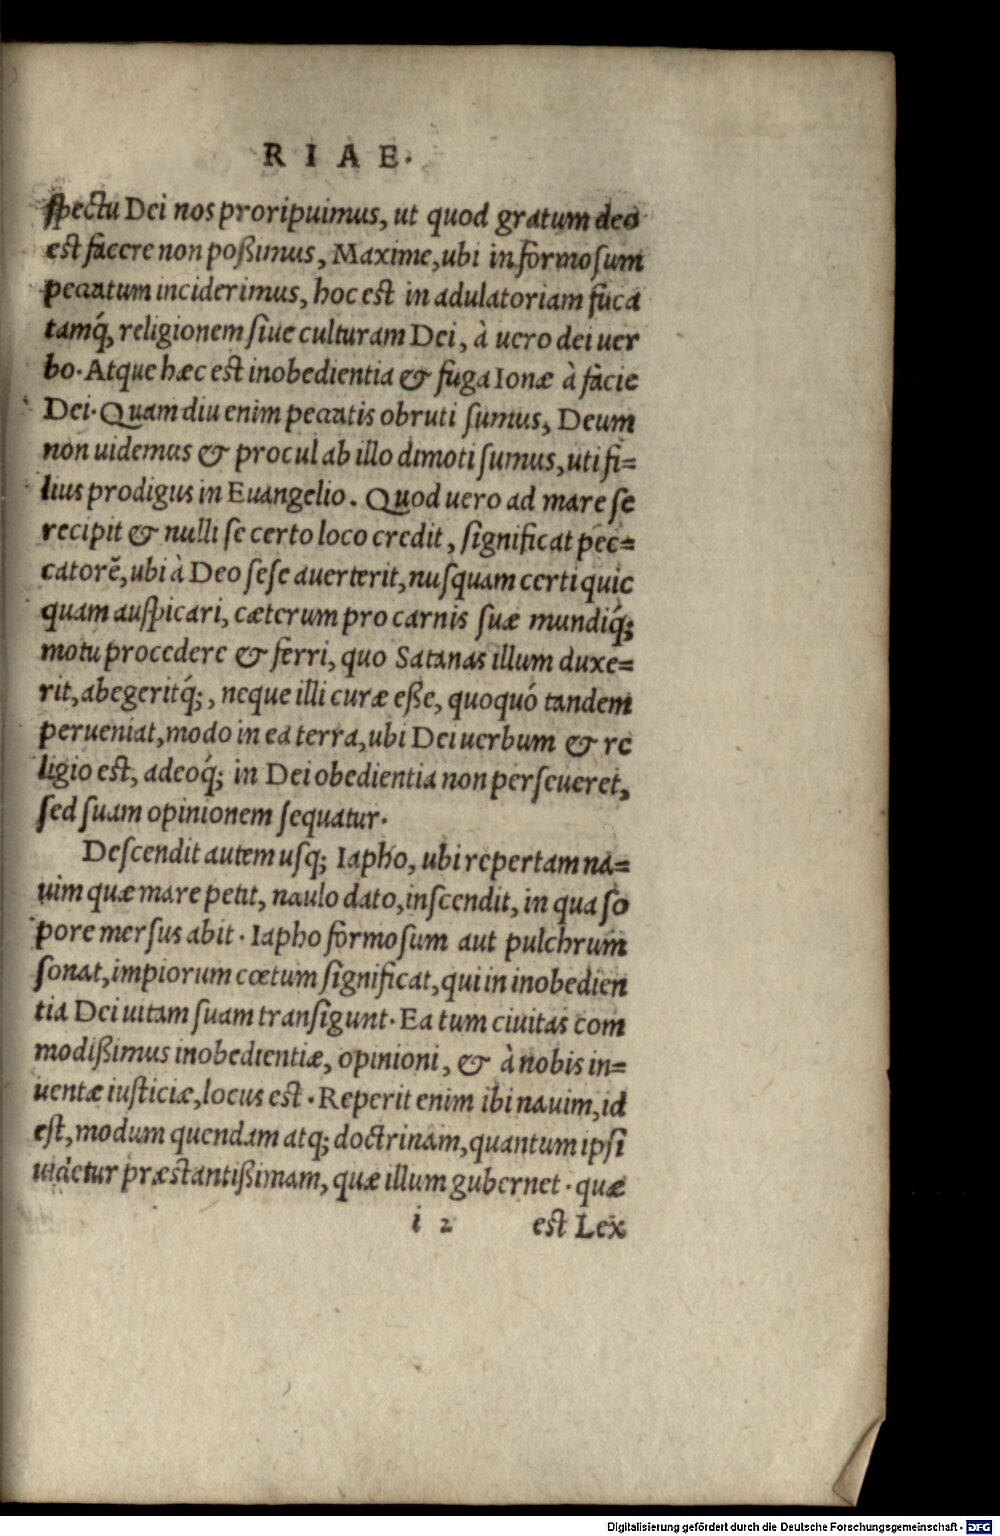 RIAE.
spectu Dei nos proripuimus, ut quod gratum deo
est facere non poßimus, Maxime, ubi in formosum
peccatum inciderimus, hoc est in adulatoriam fuca
tamq́; religionem siue culturam Dei, à uero dei uer
bo. Atque hæc est inobedientia & fuga Ionæ à facie
Dei. Quam diu enim peccatis obruti sumus, Deum
non uidemus & procul ab illo dimoti sumus, uti fi=
lius prodigus in Euangelio. Quod uero ad mare se
recipit & nulli se certo loco credit, significat pec=
catorẽ, ubi à Deo sese auerterit, nusquam certi quic
quam auspicari, cæterum pro carnis suæ mundiq́;
motu procedere & ferri, quo Satanas illum duxe=
rit, abegeritq́;, neque illi curæ eße, quoquó tandem
perueniat, modo in ea terra, ubi Dei uerbum & re
ligio est, adeoq́; in Dei obedientia non perseueret,
sed suam opinionem sequatur.
Descendit autem usq; Iapho, ubi repertam na=
uim quæ mare petit, naulo dato, inscendit, in qua so
pore mersus abit. Iapho formosum aut pulchrum
sonat, impiorum cœtum significat, qui in inobedien
tia Dei uitam suam transigunt. Ea tum ciuitas com
modißimus inobedientiæ, opinioni, & à nobis in=
uentæ iusticiæ, locus est. Reperit enim ibi nauim, id
est, modum quendam atq; doctrinam, quantum ipsi
uidetur præstantißimam, quæ illum gubernet. quæ
i 2 est Lex
Digitalisierung gefördert durch die Deutsche Forschungsgemeinschaft - DFG